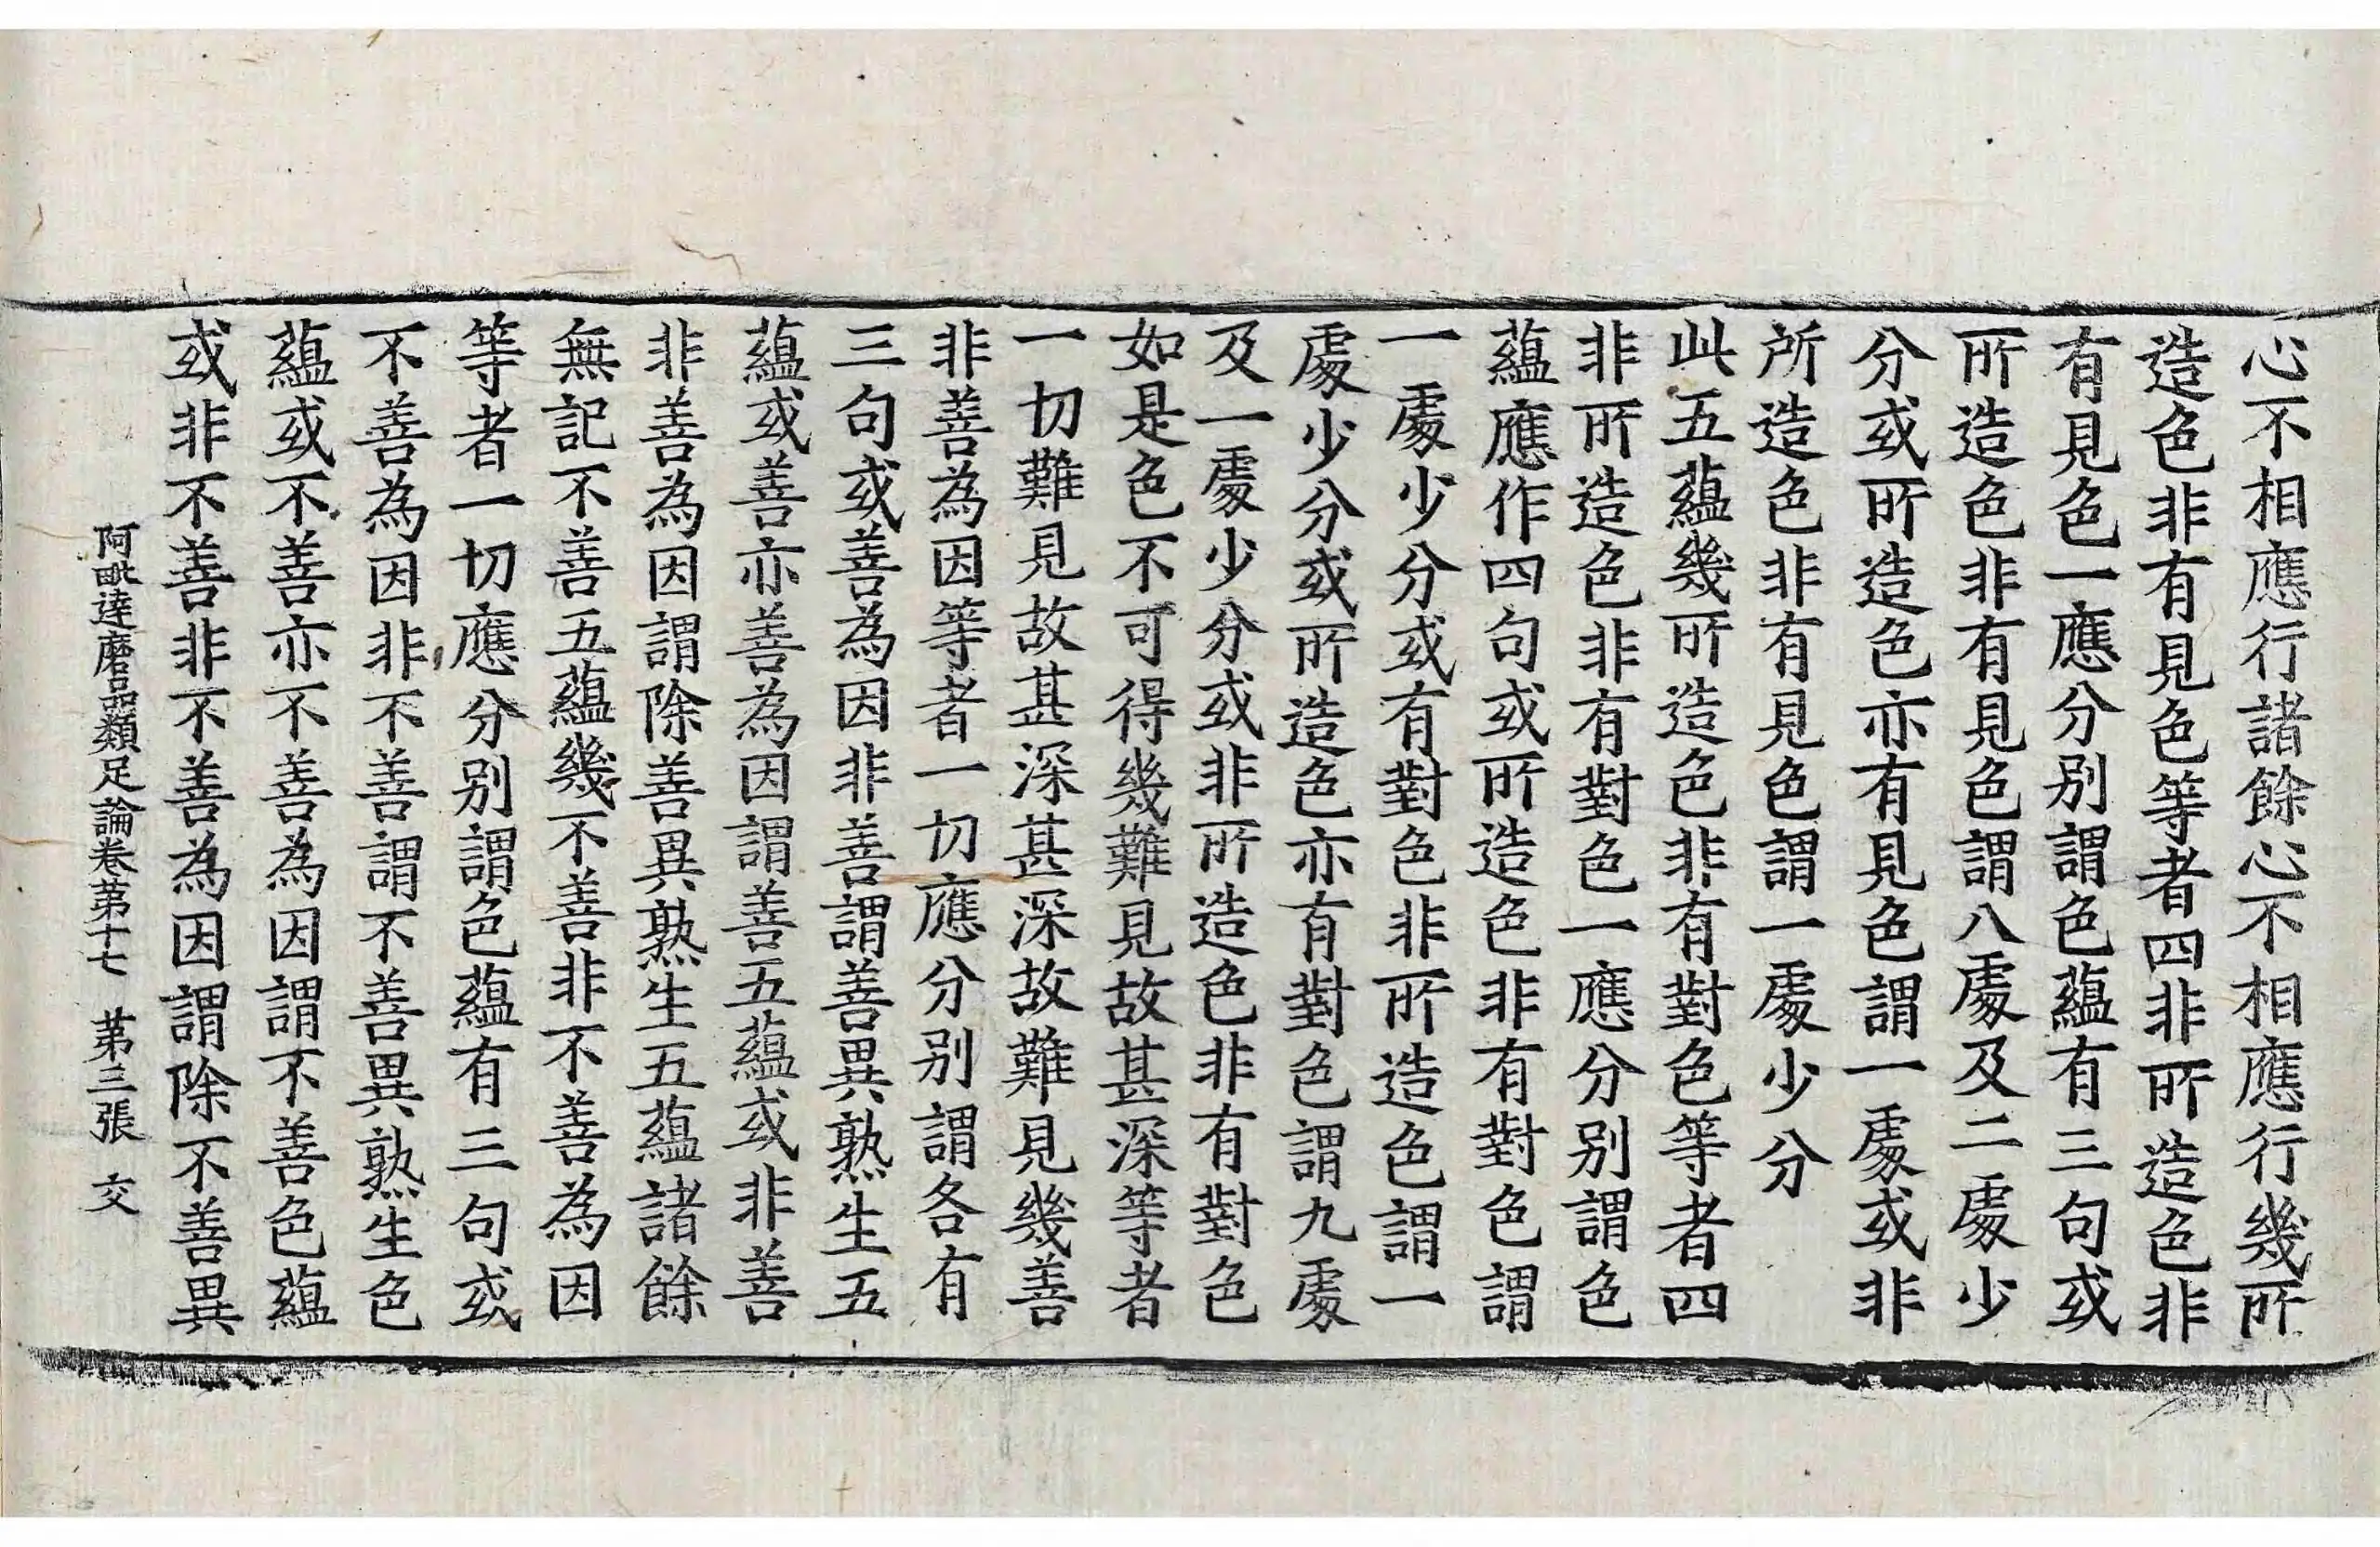 心不相應行諸餘心不相應行幾所
造色非有見色等者四非所造色非
有見色一應分別謂色蘊有三句或
所造色非有見色謂八處及二處少
分或所造色亦有見色謂一處或非
所造色非有見色謂一處少分
此五蘊幾所造色非有對色等者四
非所造色非有對色一應分別謂色
蘊應作四句或所造色非有對色謂
一處少分或有對色非所造色謂一
處少分或所造色亦有對色謂九處
及一處少分或非所造色非有對色
如是色不可得幾難見故甚深等者
一切難見故甚深甚深故難見幾善
非善為因等者一切應分別謂各有
三句或善為因非善謂善異熟生五
蘊或善亦善為因謂善五蘊或非善
非善為因謂除善異熟生五蘊諸餘
無記不善五蘊幾不善非不善為因
等者一切應分別謂色蘊有三句或
不善為因非不善謂不善異熟生色
蘊或不善亦不善為因謂不善色蘊
或非不善非不善為因謂除不善異
阿毗達磨品類足論卷第十七 第三張 交